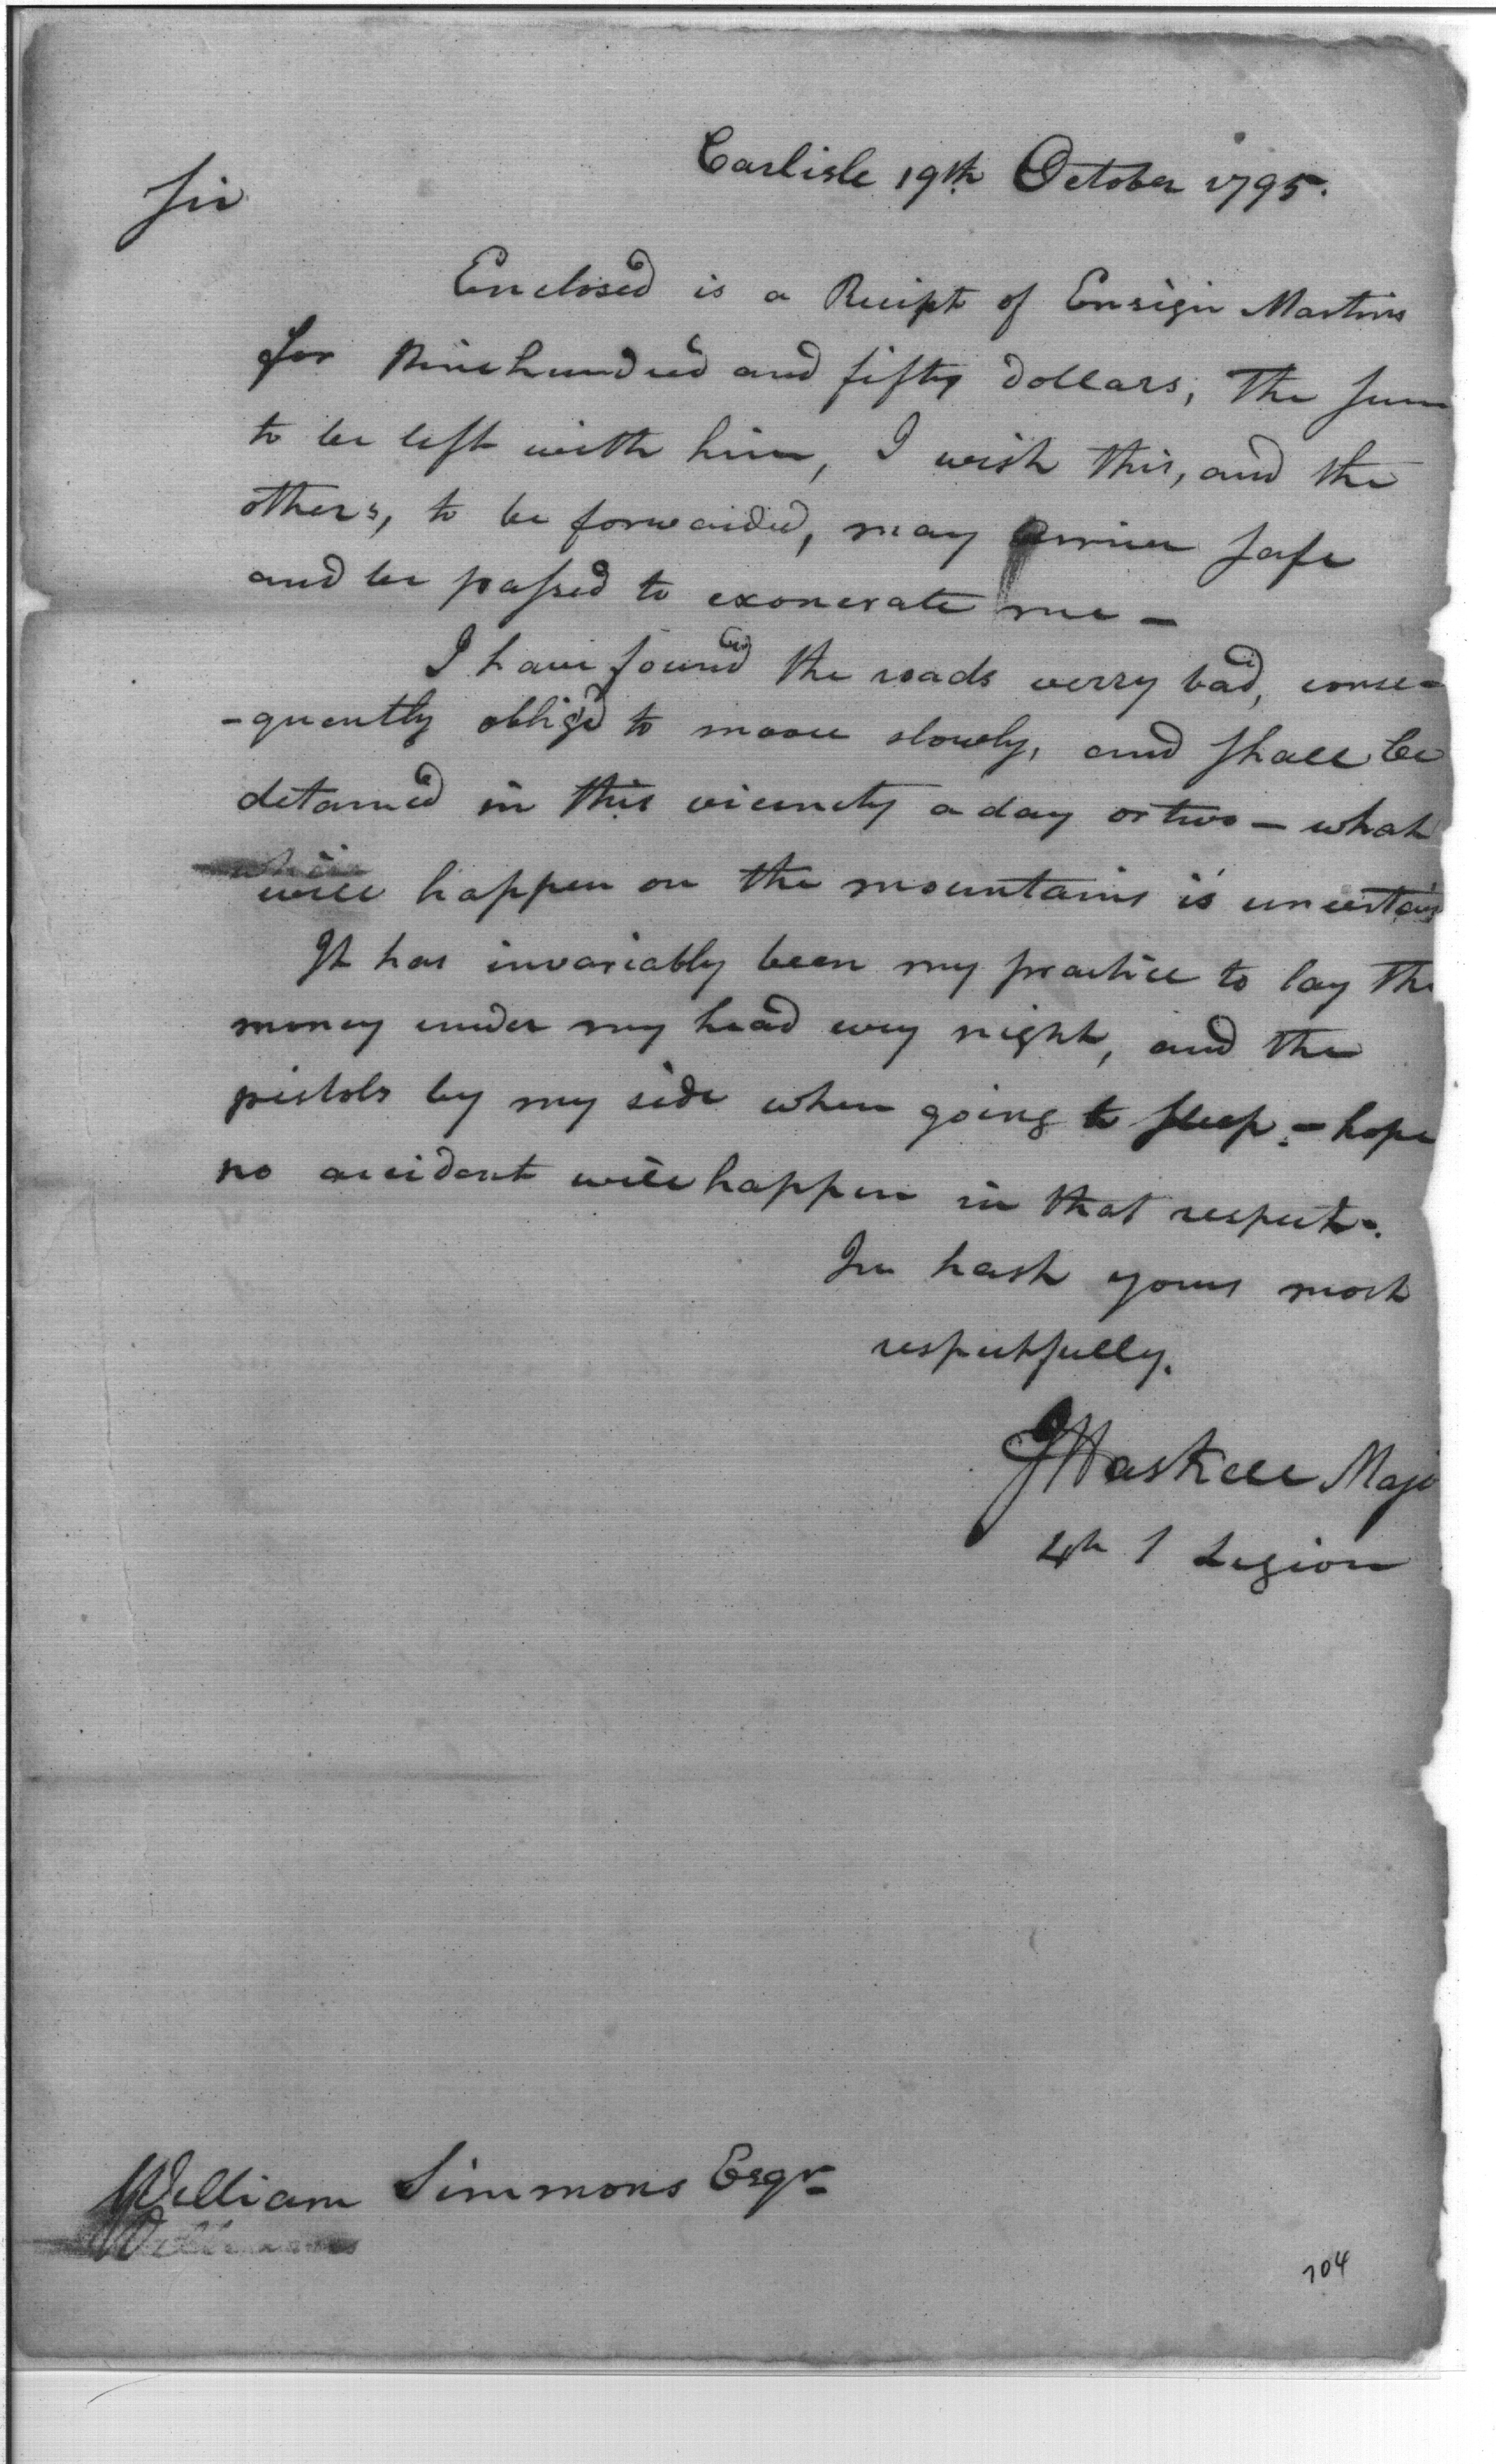 Carlisle 19th October 1795.
Sir
Enclosed is a Receipt of Ensign Martins
for Ninehundred and fifty dollars, The Sum
to be left with him, I wish this, and the
others, to be forwarded, may arrive safe
and be passed to exonerate me -
I have found the roads verry bad, conse-
-quently obligd to moove slowly, and shall be
detained in this vicinity a day or two - what
will happen on the mountains is uncertain
It has invariably been my practice to lay the
money under my head every night, and the
pistols by my side when going to sleep - hope
no accident will happen in that respect -.
In hast yours most
respectfully.
J Haskell Majo
4th S Legion
William Simmons Esqr
104